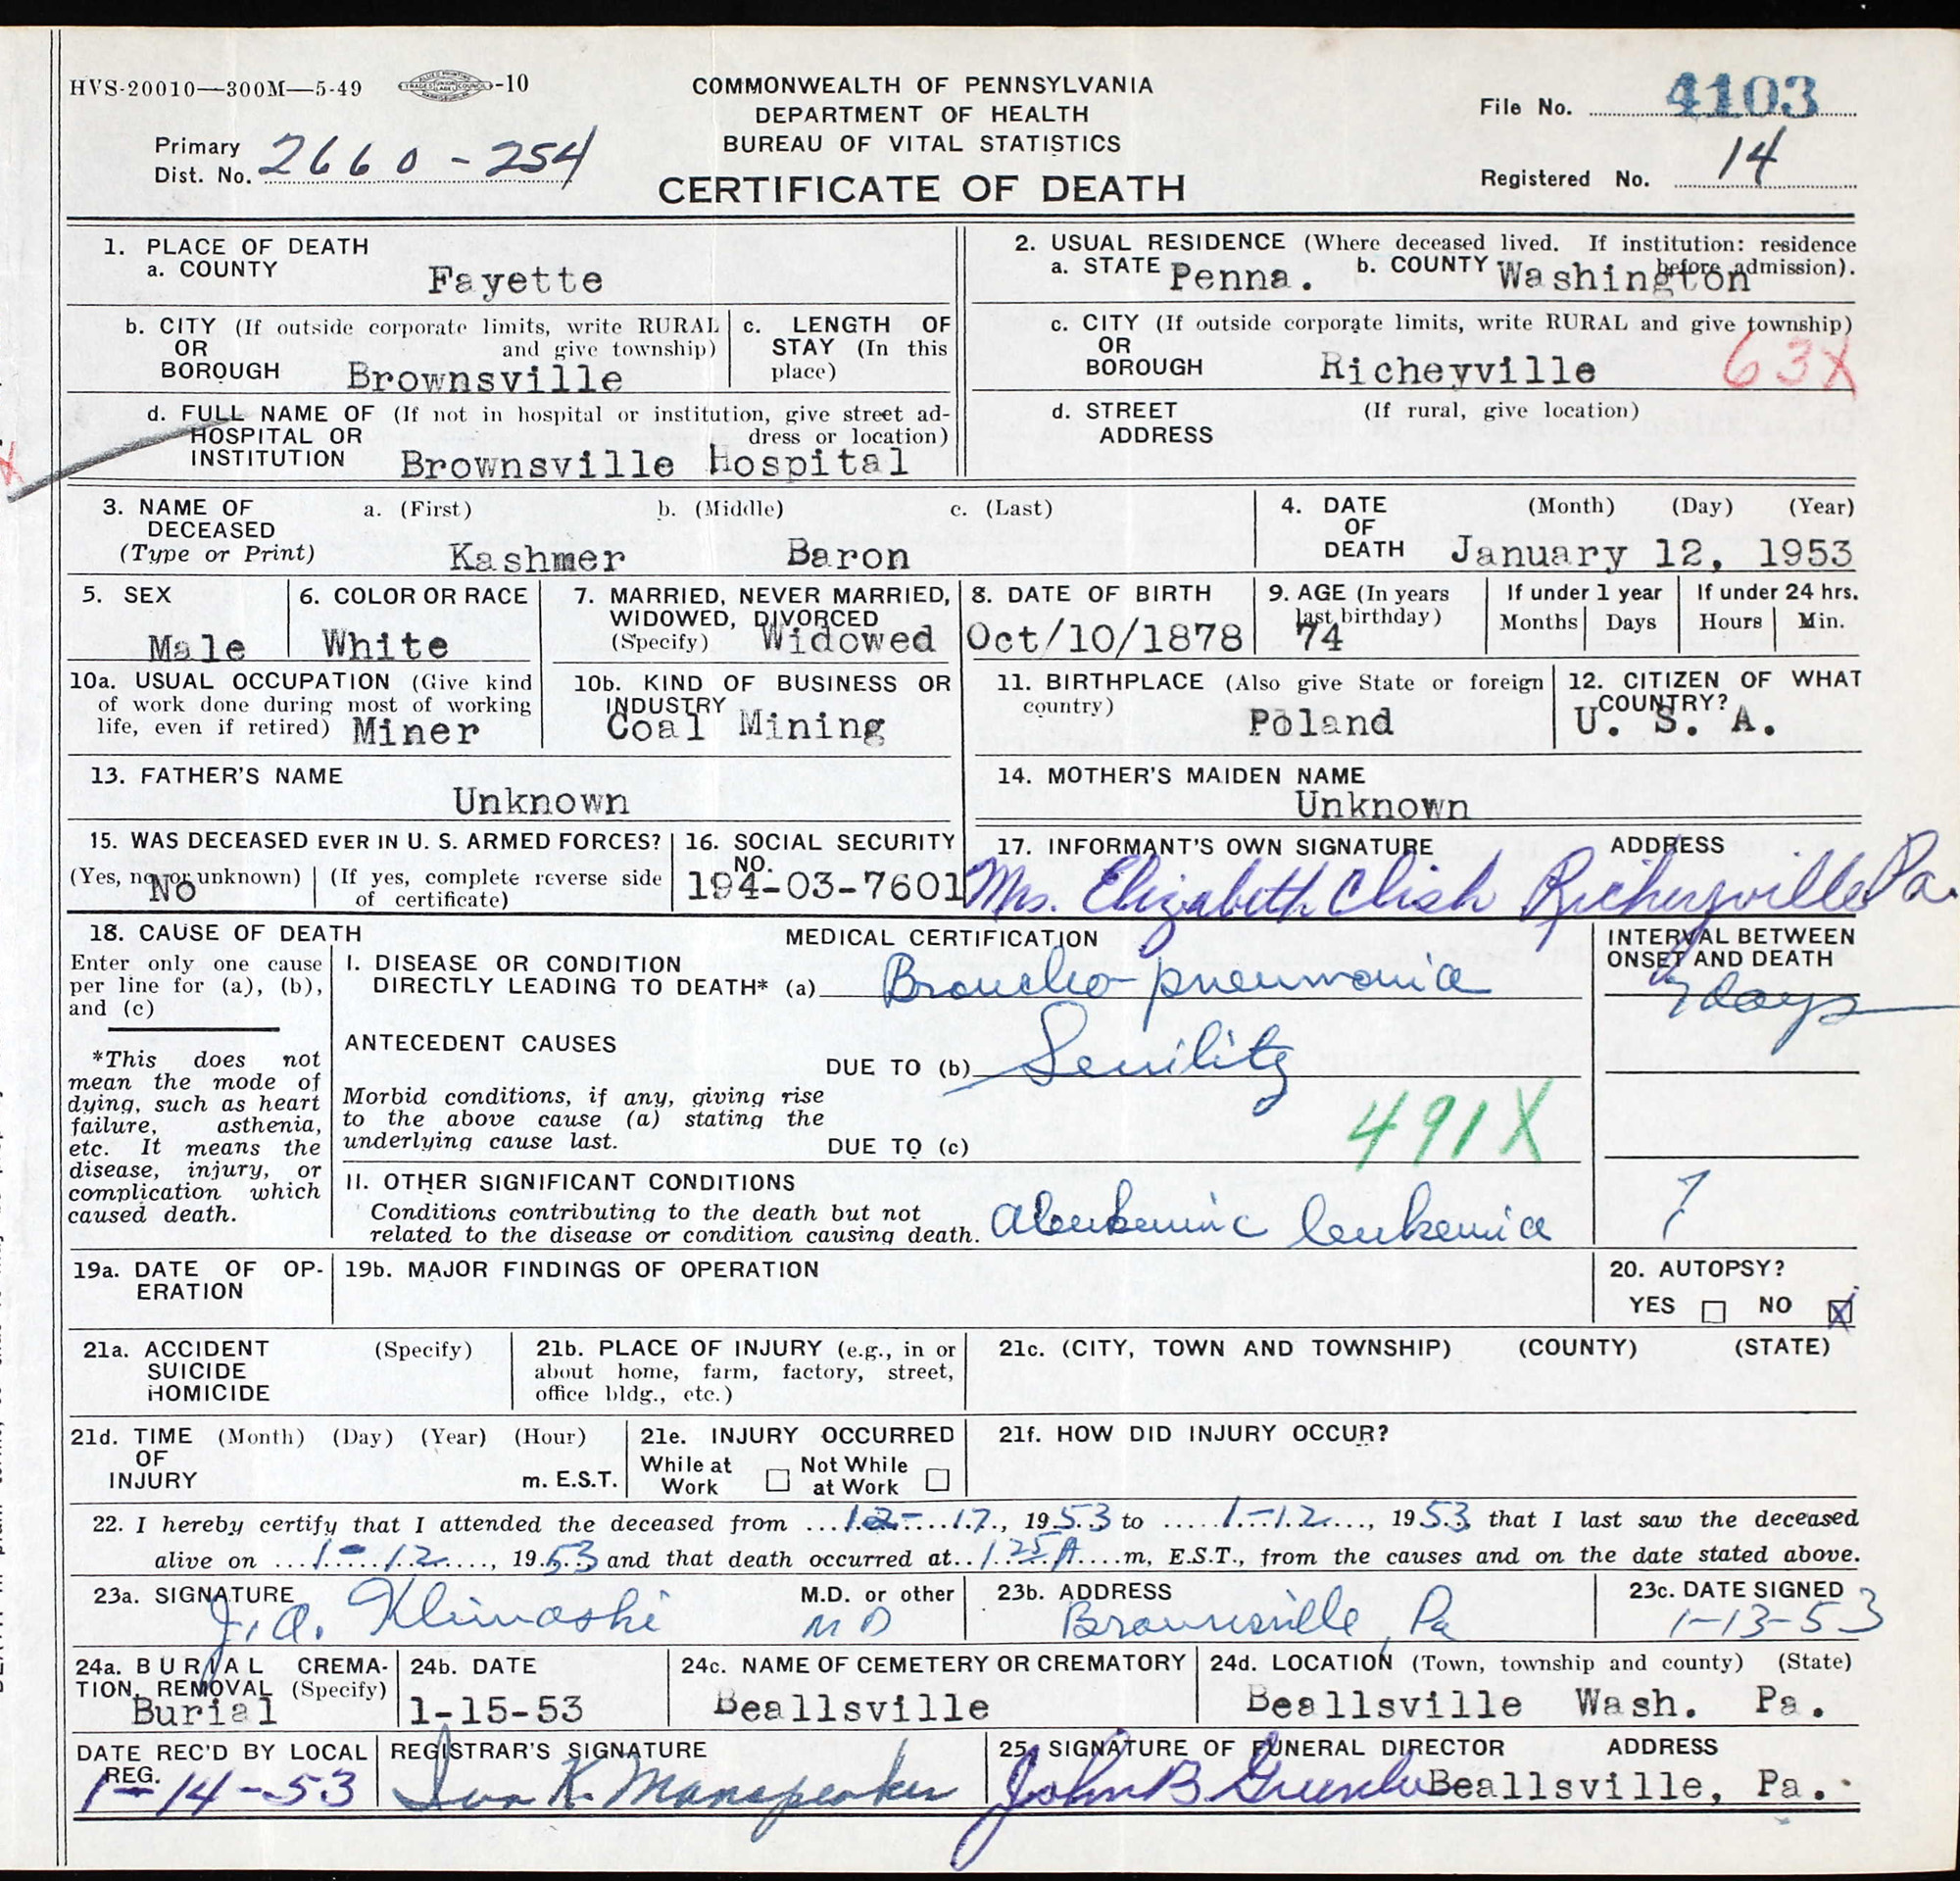 HVS-20010—300M—5-49 -10
COMMONWEALTH OF PENNSYLVANIA
DEPARTMENT OF HEALTH
BUREAU OF VITAL STATISTICS
CERTIFICATE OF DEATH
File No. 4103
Primary Dist. No. 2660-254
Registered No. 14
1. PLACE OF DEATH
a. COUNTY Fayette
2. USUAL RESIDENCE (Where deceased lived. If institution: residence before admission).
a. STATE Penna. b. COUNTY Washington
b. CITY (If outside corporate limits, write RURAL and give township)
OR
BOROUGH Brownsville
c. LENGTH OF STAY (In this place)
c. CITY (If outside corporate limits, write RURAL and give township)
OR
BOROUGH Richeyville 63X
d. FULL NAME OF (If not in hospital or institution, give street address or location)
HOSPITAL OR
INSTITUTION Brownsville Hospital
d. STREET ADDRESS (If rural, give location)
3. NAME OF DECEASED (Type or Print)
a. (First) b. (Middle) c. (Last)
Kashmer Baron
4. DATE OF DEATH (Month) (Day) (Year)
January 12, 1953
5. SEX
Male
6. COLOR OR RACE
White
7. MARRIED, NEVER MARRIED, WIDOWED, DIVORCED (Specify) Widowed
8. DATE OF BIRTH
Oct/10/1878
9. AGE (In years last birthday)
74
If under 1 year
Months Days
If under 24 hrs.
Hours Min.
10a. USUAL OCCUPATION (Give kind of work done during most of working life, even if retired) Miner
10b. KIND OF BUSINESS OR INDUSTRY
Coal Mining
11. BIRTHPLACE (Also give State or foreign country)
Poland
12. CITIZEN OF WHAT COUNTRY?
U. S. A.
13. FATHER'S NAME
Unknown
14. MOTHER'S MAIDEN NAME
Unknown
15. WAS DECEASED EVER IN U. S. ARMED FORCES?
(Yes, no, or unknown) (If yes, complete reverse side of certificate)
No
16. SOCIAL SECURITY NO.
194-03-7601
17. INFORMANT'S OWN SIGNATURE ADDRESS
Mrs. Elizabeth Clish Richeyville Pa.
18. CAUSE OF DEATH
Enter only one cause per line for (a), (b), and (c)
*This does not mean the mode of dying, such as heart failure, asthenia, etc. It means the disease, injury, or complication which caused death.
MEDICAL CERTIFICATION
INTERVAL BETWEEN ONSET AND DEATH
I. DISEASE OR CONDITION DIRECTLY LEADING TO DEATH* (a) Broncho-pneumonia
days
ANTECEDENT CAUSES
DUE TO (b) Senility
Morbid conditions, if any, giving rise to the above cause (a) stating the underlying cause last.
DUE TO (c)
491X
II. OTHER SIGNIFICANT CONDITIONS
Conditions contributing to the death but not related to the disease or condition causing death. Aleukemic leukemia ?
19a. DATE OF OPERATION
19b. MAJOR FINDINGS OF OPERATION
20. AUTOPSY?
YES NO X
21a. ACCIDENT SUICIDE HOMICIDE (Specify)
21b. PLACE OF INJURY (e.g., in or about home, farm, factory, street, office bldg., etc.)
21c. (CITY, TOWN AND TOWNSHIP) (COUNTY) (STATE)
21d. TIME OF INJURY (Month) (Day) (Year) (Hour)
m. E.S.T.
21e. INJURY OCCURRED
While at Work Not While at Work
21f. HOW DID INJURY OCCUR?
22. I hereby certify that I attended the deceased from 12-17, 1953 to 1-12, 1953 that I last saw the deceased
alive on 1-12, 1953 and that death occurred at 1 25 A m, E.S.T., from the causes and on the date stated above.
23a. SIGNATURE M.D. or other
J. A. Klimoski MD
23b. ADDRESS
Brownsville, Pa
23c. DATE SIGNED
1-13-53
24a. BURIAL CREMATION, REMOVAL (Specify)
Burial
24b. DATE
1-15-53
24c. NAME OF CEMETERY OR CREMATORY
Beallsville
24d. LOCATION (Town, township and county) (State)
Beallsville Wash. Pa.
DATE REC'D BY LOCAL REG.
1-14-53
REGISTRAR'S SIGNATURE
K. Manspeaker
25. SIGNATURE OF FUNERAL DIRECTOR ADDRESS
John B Beallsville, Pa.